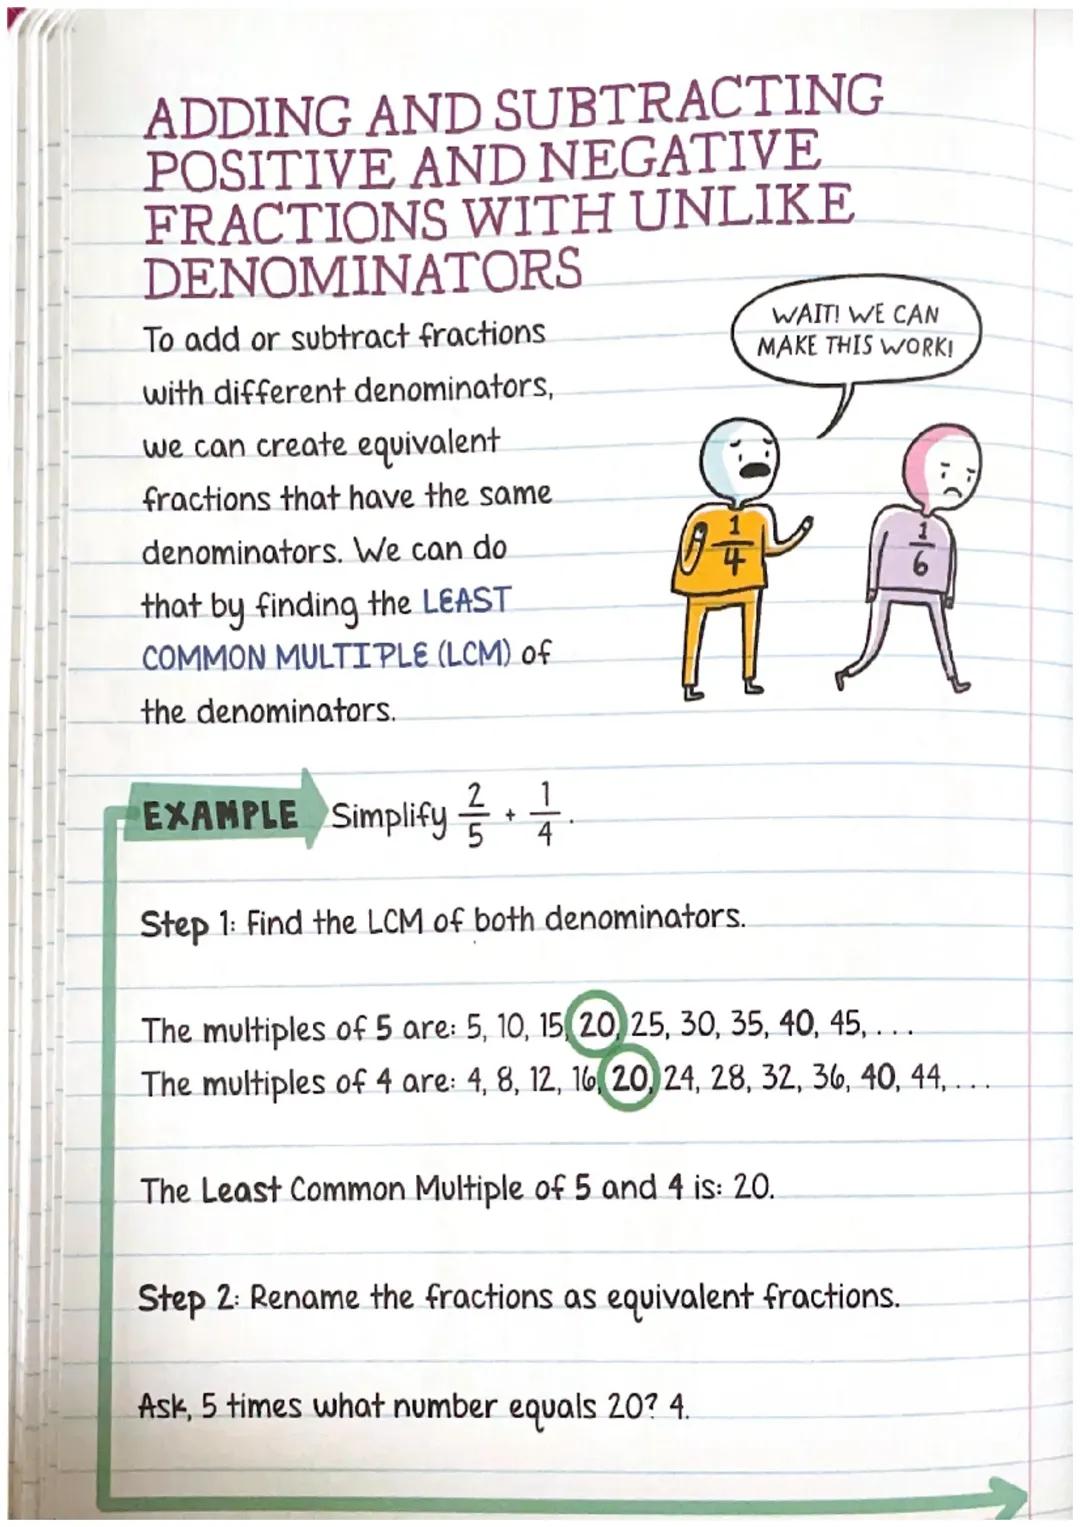 ADDING AND SUBTRACTING
POSITIVE AND NEGATIVE
FRACTIONS WITH UNLIKE
DENOMINATORS
To add or subtract fractions
with different denominators,
we can create equivalent
fractions that have the same
denominators. We can do
that by finding the LEAST
COMMON MULTIPLE (LCM) of
the denominators.
WAIT! WE CAN
MAKE THIS WORK!
1/4
1/6
EXAMPLE Simplify 2/5 + 1/4.
Step 1: Find the LCM of both denominators.
The multiples of 5 are: 5, 10, 15, 20, 25, 30, 35, 40, 45, . . .
The multiples of 4 are: 4, 8, 12, 16, 20, 24, 28, 32, 36, 40, 44, . . .
The Least Common Multiple of 5 and 4 is: 20.
Step 2: Rename the fractions as equivalent fractions.
Ask, 5 times what number equals 20? 4.